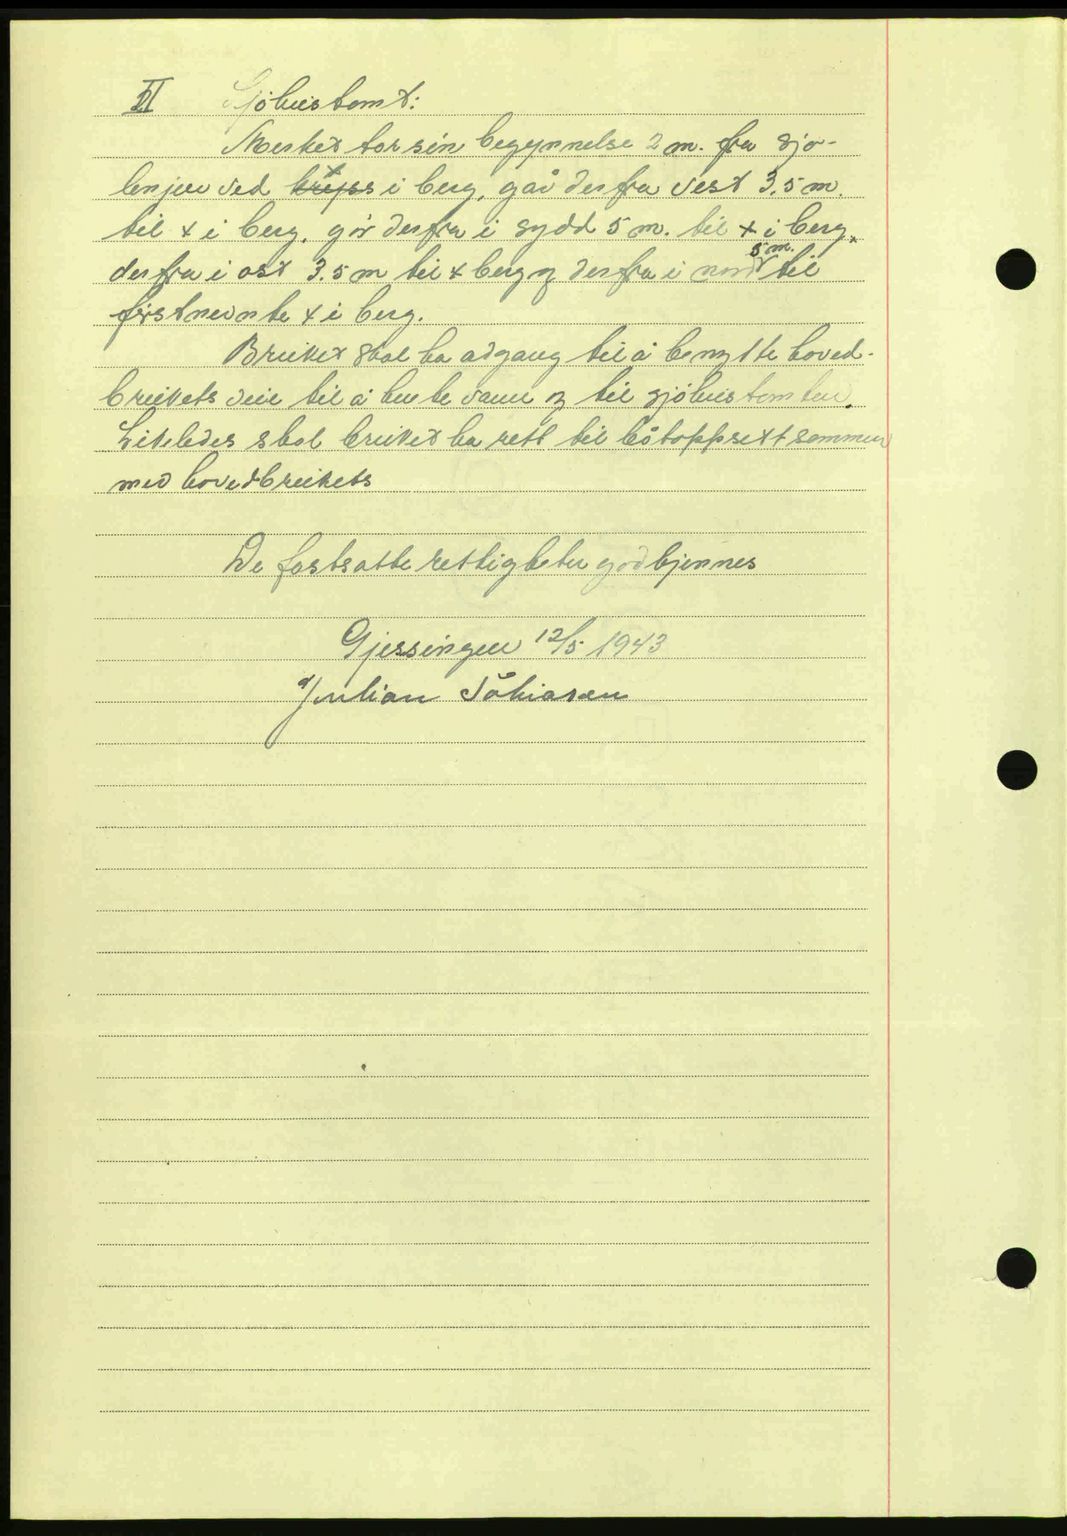 II Sjöhustomt:
Merket tar sin begynnelse 2 m. fra sjö-
lenjen ved x i berg, går derfra vest 3,5 m.
til x i berg, går derfra i sydd 5 m. til x i berg,
derfra i öst 3.5 m til x berg og derfra i nord 5 m. til
förstnevnte x i berg.
Bruket skal ha adgang til å benytte hoved-
brukets veie til å hente vann og til sjöhustomten.
Likeledes skal bruket ha rett til båtoppsett sammen
med hovedbrukets
De fastsatte rettigheter godkjennes
Gjessingen 12/5 1943
Julian Tobiasen